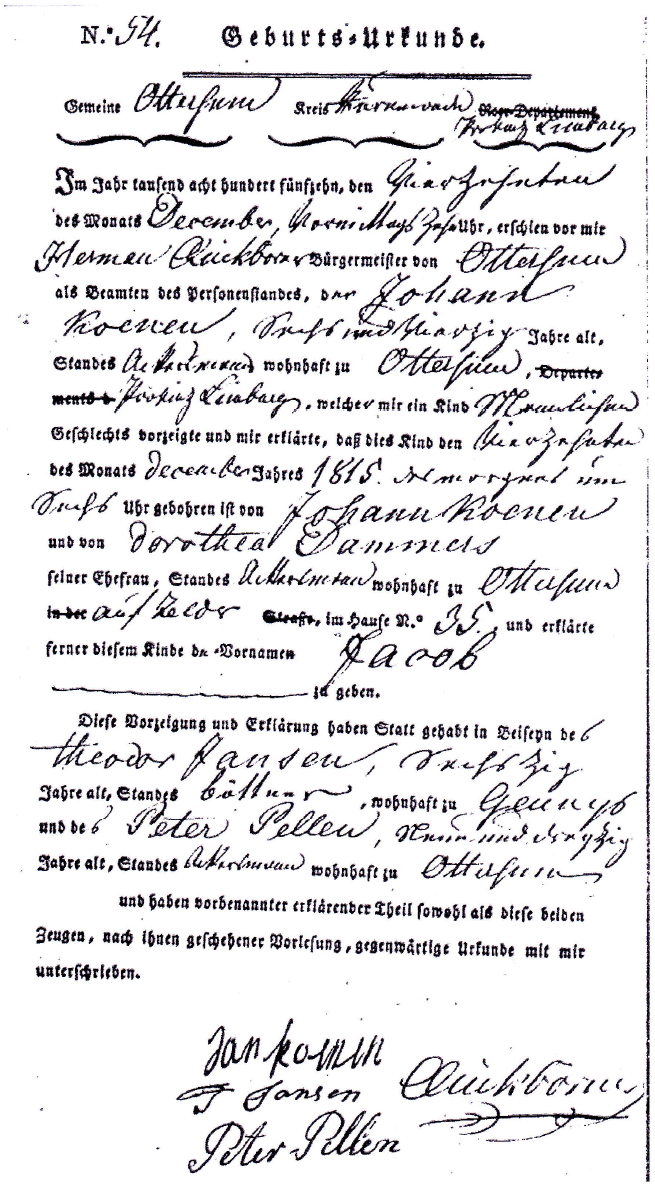 N.º 54. Geburts-Urkunde.
Gemeine Ottersum Kreis Roer-Departement
Provintz Limburg
Im Jahr tausend acht hundert fünfzehn, den Vierzehnten
des Monats December, Vormittags Zehn Uhr, erschien vor mir
Herman Quickborn Bürgermeister von Ottersum
als Beamten des Personenstandes, der Johann
Koenen, Sechs und Vierzig Jahre alt,
Standes Ackersmann wohnhaft zu Ottersum, Departe-
ments d Provintz Limburg, welcher mir ein Kind Mennlichen
Geschlechts vorzeigte und mir erklärte, daß dies Kind den Vierzehnten
des Monats december Jahres 1815. des morgens um
Sechs Uhr gebohren ist von Johann Koenen
und von dorothea Dammers
seiner Ehefrau, Standes Ackersmann wohnhaft zu Ottersum
in der auf Straße, im Hause N.º 35. und erklärte
ferner diesem Kinde den Vornamen Jacob
zu geben.
Diese Vorzeigung und Erklärung haben Statt gehabt in Beiseyn des
theodor Jansen, Sechszig
Jahre alt, Standes böttner, wohnhaft zu Gennep
und des Peter Pellen, Neun und dreyzig
Jahre alt, Standes Ackersmann wohnhaft zu Ottersum
und haben vorbenannter erklärender Theil sowohl als diese beiden
Zeugen, nach ihnen geschehener Vorlesung, gegenwärtige Urkunde mit mir
unterschrieben.
Jan koenen
T Jansen Quickborn
Peter Pellen